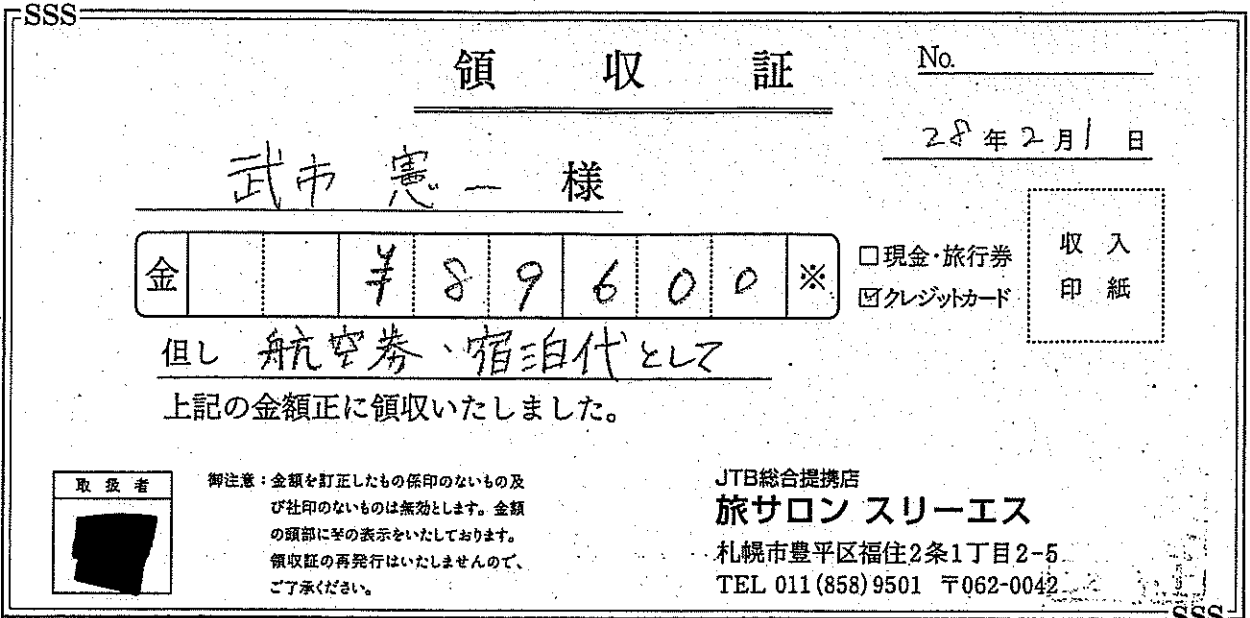 SSS
領収証
No.
28年2月1日
武市憲一 様
金 ¥89600※
□現金・旅行券
☑クレジットカード
収入
印紙
但し 航空券、宿泊代として
上記の金額正に領収いたしました。
取扱者
御注意：金額を訂正したもの係印のないもの及
び社印のないものは無効とします。金額
の頭部に¥の表示をいたしております。
領収証の再発行はいたしませんので、
ご了承ください。
JTB総合提携店
旅サロン スリーエス
札幌市豊平区福住2条1丁目2-5
TEL 011(858)9501 〒062-0042
SSS